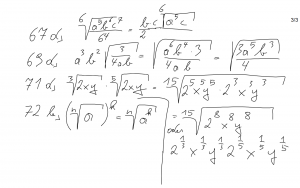 67 d, ⁶√(a⁵b⁶c⁷/64) = bc/2 ⁶√(a⁵c)
69 d, a³b²√(3/4ab) = √(a⁶b⁴3/4ab) = √(3a⁵b³/4)
71 d, ³√(2xy) · ⁵√(2xy) = ¹⁵√(2⁵x⁵y⁵ 2³x³y³)
72 b, (ⁿ√a)ᵏ = ⁿ√(aᵏ) = ¹⁵√(2⁸x⁸y⁸)
oder
2^(1/3) x^(1/3) y^(1/3) 2^(1/5) x^(1/5) y^(1/5)